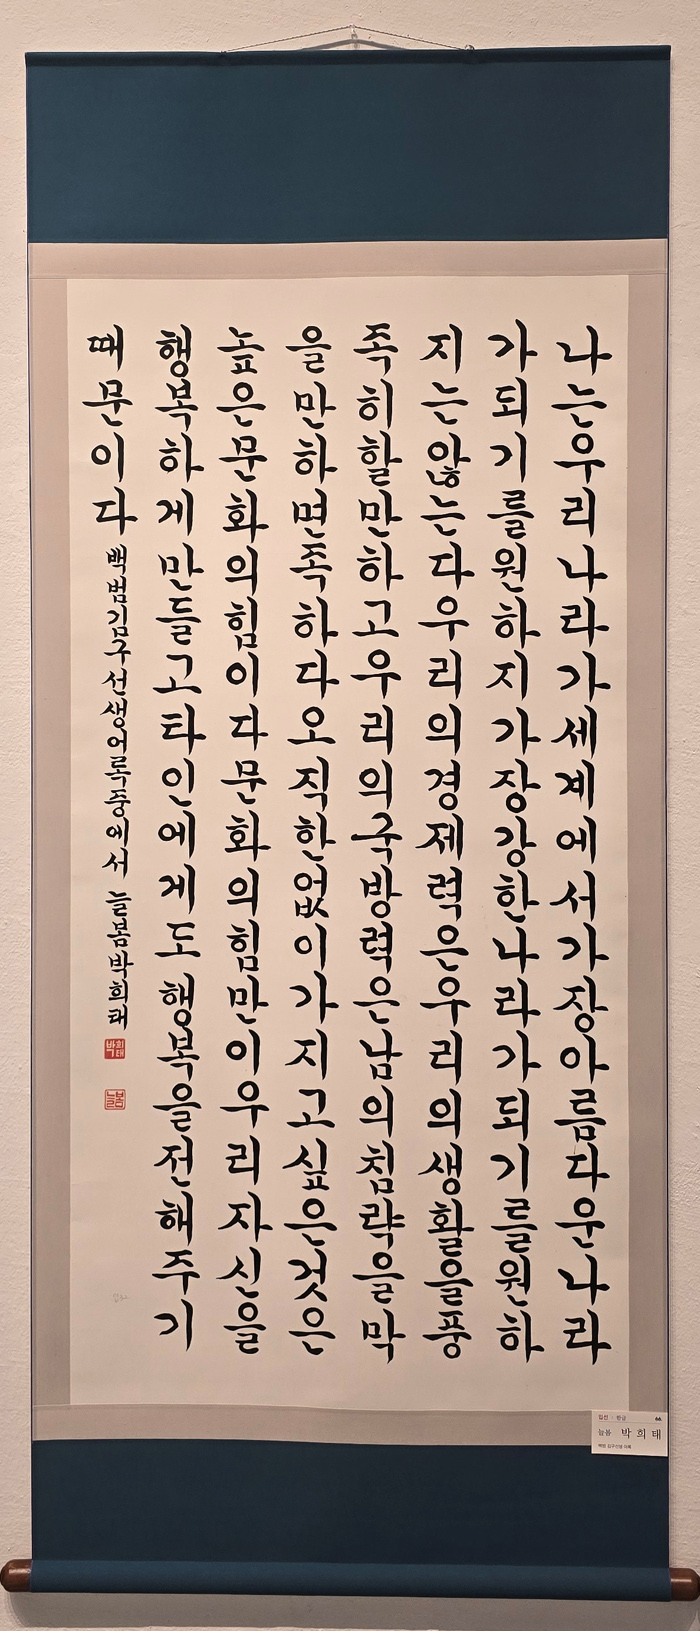 나는우리나라가세계에서가장아름다운나라
가되기를원하지가장강한나라가되기를원하
지는않는다우리의경제력은우리의생활을풍
족히할만하고우리의국방력은남의침략을막
을만하면족하다오직한없이가지고싶은것은
높은문화의힘이다문화의힘만이우리자신을
행복하게만들고타인에게도행복을전해주기
때문이다 백범김구선생어록중에서 늘봄박희태
박희태
늘봄
입선 : 한글 66
늘봄 박희태
백범 김구선생 어록